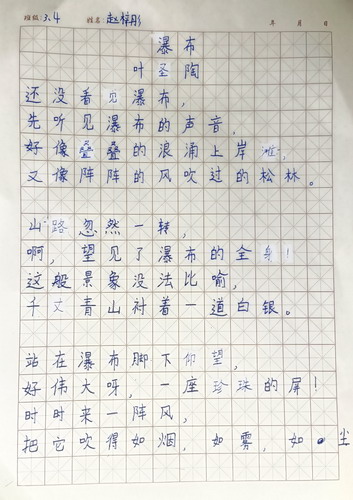 班级:3.4 姓名:赵梓彤 年 月 日
瀑布
叶圣陶
还没看见瀑布,
先听见瀑布的声音,
好像叠叠的浪涌上岸滩,
又像阵阵的风吹过的松林。
山路忽然一转,
啊,望见了瀑布的全身!
这般景象没法比喻,
千丈青山衬着一道白银。
站在瀑布脚下仰望,
好伟大呀,一座珍珠的屏!
时时来一阵风,
把它吹得如烟,如雾,如尘